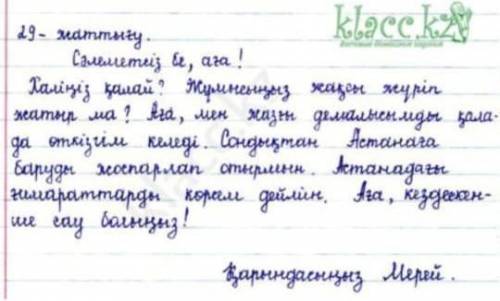 klacc.kz
29 - жаттығу.
Сәлеметсіз бе, аға!
Халіңіз қалай? Жұмысыңыз жақсы жүріп
жатыр ма? Аға, мен жазғы демалысымды қала-
да өткізгім келеді. Сондықтан Астанаға
баруды жоспарлап отырмын. Астанадағы
ғимараттарды көрсем деймін. Аға, кездескен-
ше сау болыңыз!
Қарындасыңыз Мерей.